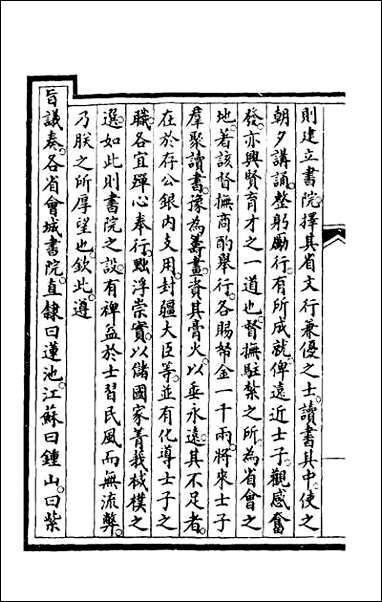 則建立書院擇其省文行兼優之士讀書其中使之
朝夕講誦整躬勵行有所成就俾遠近士子觀感奮
發亦興賢育才之一道也督撫駐紮之所為省會之
地著該督撫商酌舉行各賜帑金一千兩將來士子
羣聚讀書豫為籌畫資其膏火以垂永遠其不足者
在於存公銀內支用封疆大臣等並有化導士子之
職各宜殫心奉行黜浮崇實以儲國家菁莪棫樸之
選如此則書院之設有裨益於士習民風而無流弊
乃朕之所厚望也欽此遵
旨議奏各省會城書院直隸曰蓮池江蘇曰鍾山曰紫